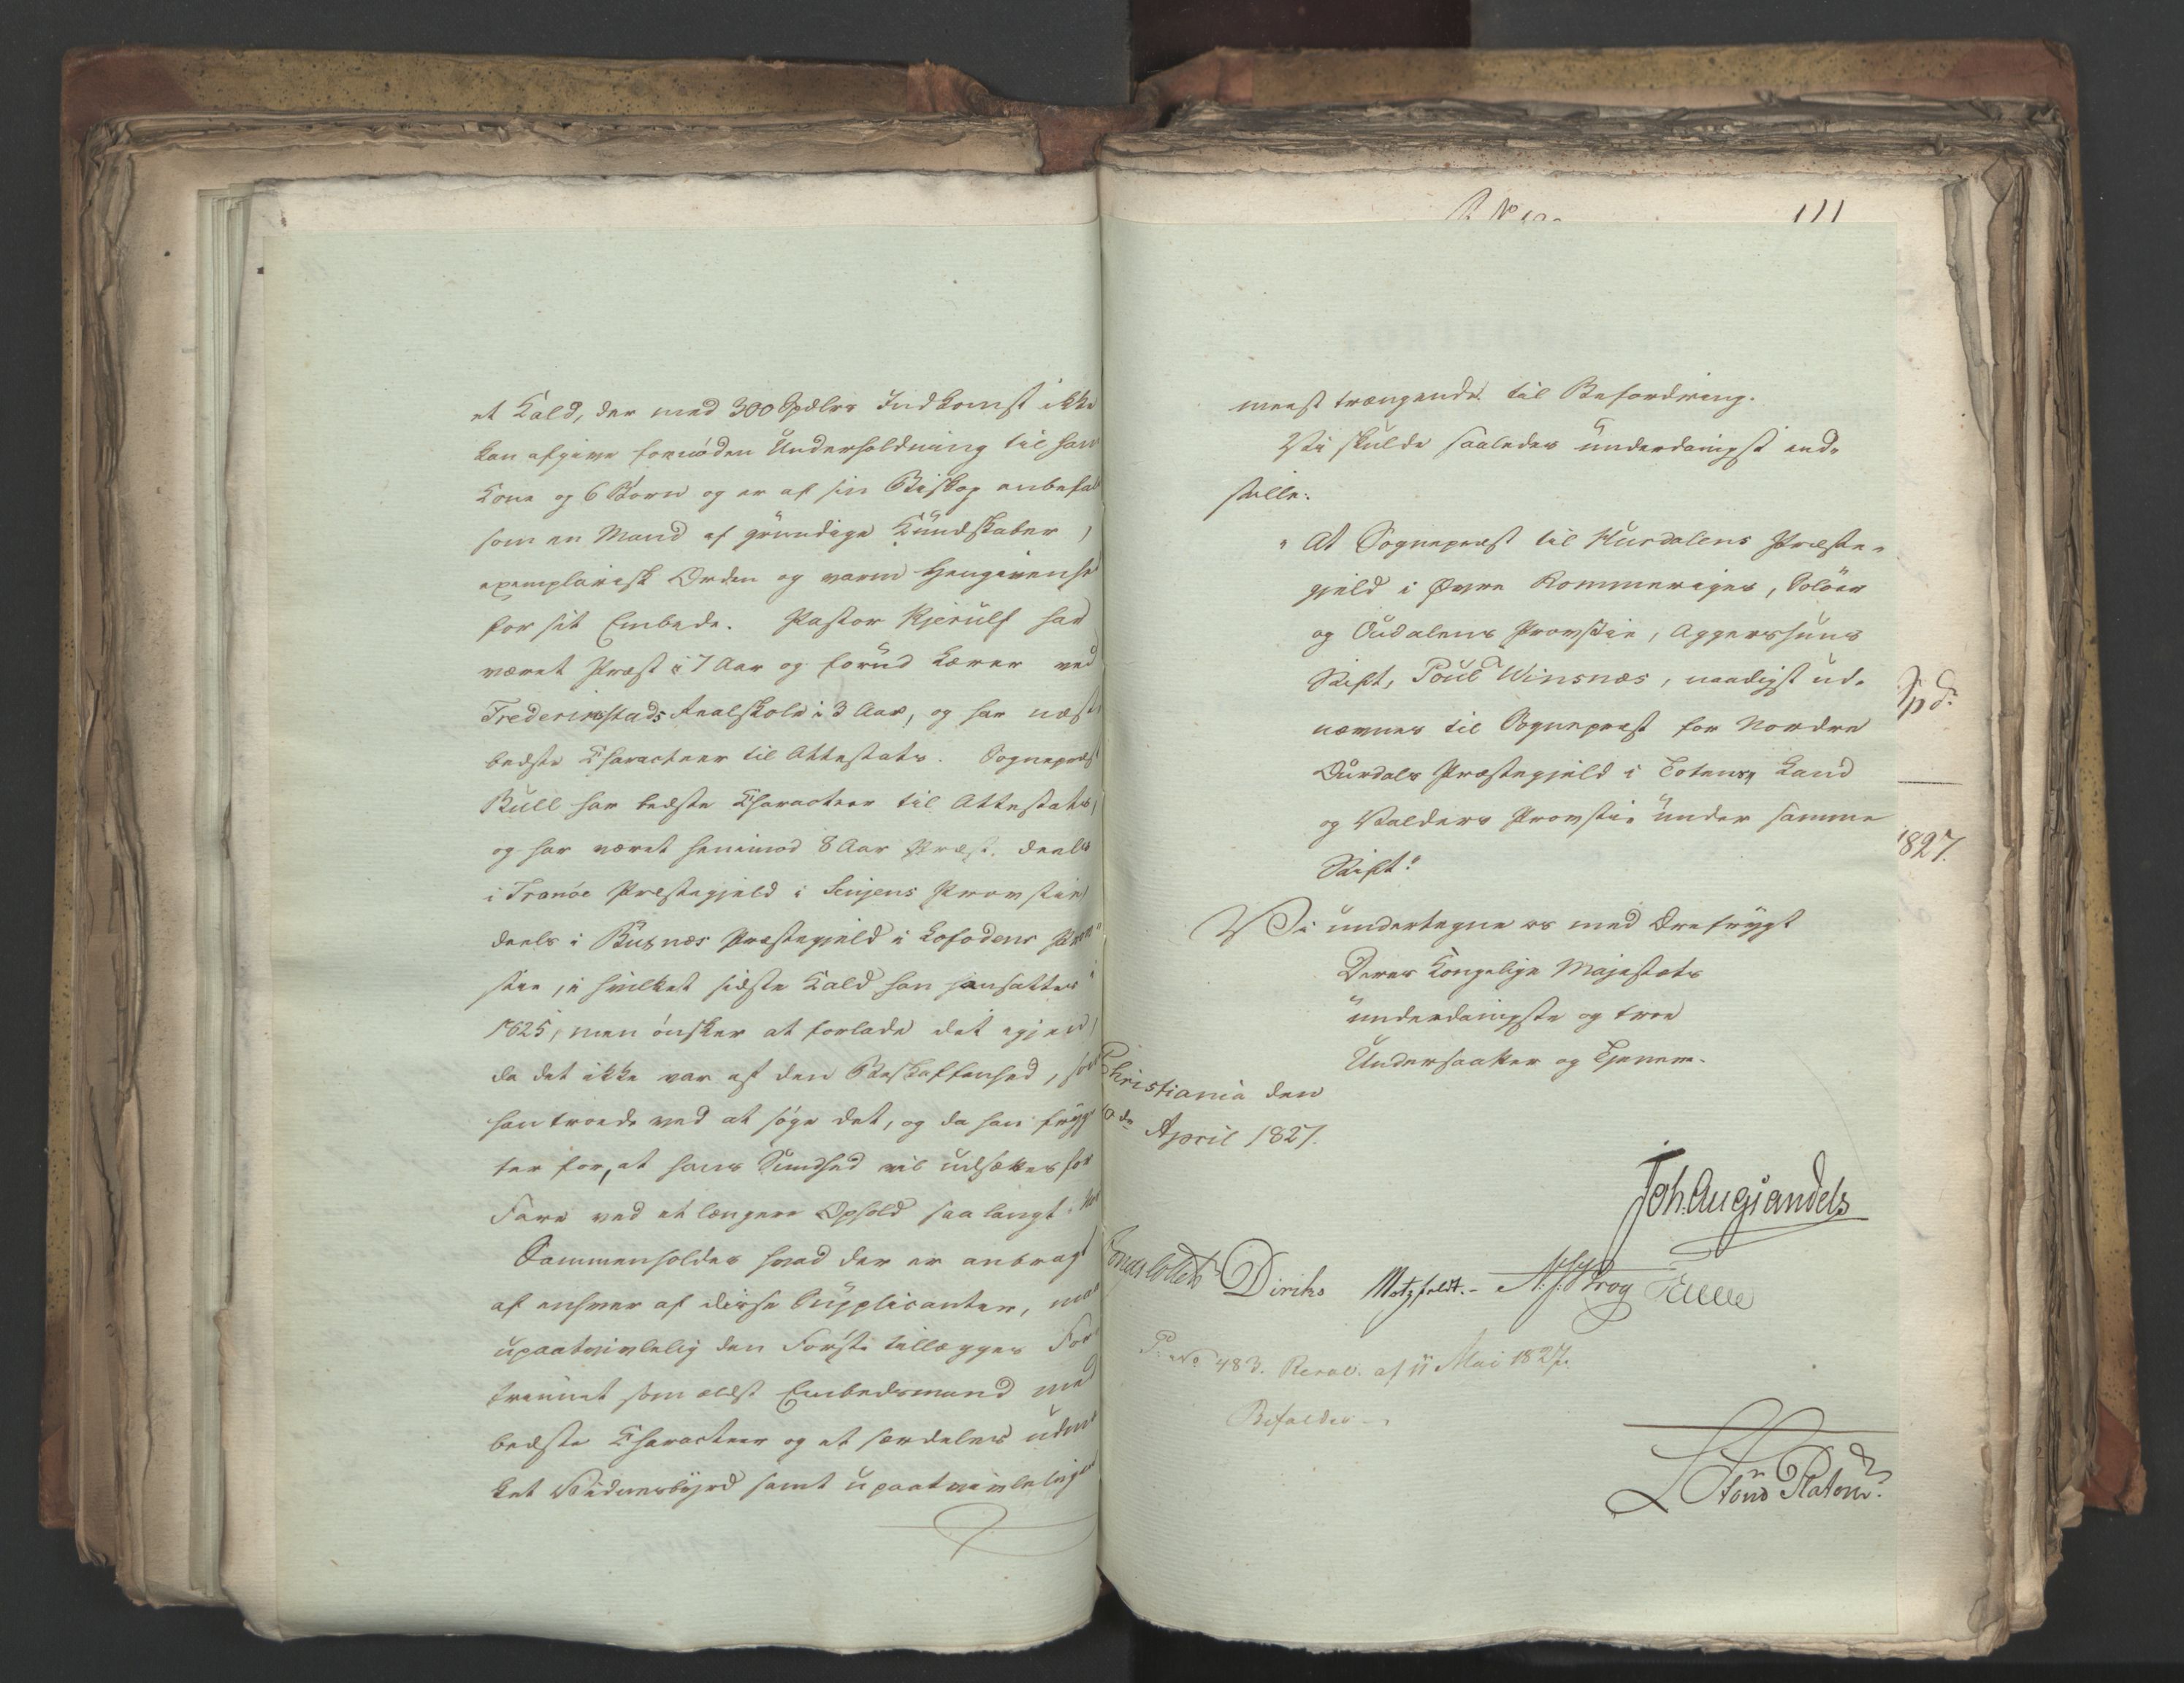 et Kald, der med 300 Spdlrs Indkomst ikke
kan afgive fornöden Underholdning til ham
Kone og 6 Börn og er af sin Biskop anbefal
som en Mand af grundige Kundskaber,
exemplarisk Orden og varm Hengivenhed
for sit Embede. Pastor Kjerulf har
været Præst i 7 Aar og forud Lærer ved
Frederikstads Realskole i 3 Aar, og har næst
bedste Characteer til Attestats. Sognepræst
Bull har bedste Characteer til Attestats,
og har været henimod 8 Aar Præst, deels
i Tranöe Præstegjeld i Senjens Provstie
deels i Buxnæs Præstegjeld i Lofodens Prov
stie, i hvilket sidste Kald han ansattes i
1825, men önsker at forlade det igjen,
da det ikke var af den Beskaffenhed, som
han troede ved at söge det, og da han fryg
ter for, at hans Sundhed vil udsættes for
Fare ved et længere Ophold saa langt i
Sammenholdes hvad der er anbragt
af enhver af disse Supplicanter, maa
upaatvivlelig den Förste tillægges For
trinnet som ældst Embedsmand med
bedste Characteer og et særdeles udmær
ket Vidnesbyrd samt upaatvivleligen
111
meest trængende til Befordring.
Vi skulde saaledes underdanigst ind-
stille:
" At Sognepræst til Hurdalens Præste-
gjeld i Övre Rommeriges, Solöer
og Oudalens Provstie, Aggershuus
Stift, Poul Winsnæs, naadigst ud-
nævnes til Sognepræst for Nordre
Ourdals Præstegjeld i Totens, Land
og Valders Provstie under samme
Stift."
Spd.
1827.
Vi undertegne os med Ærefrygt
Deres Kongelige Majestæts
underdanigste og troe
Undersaatter og Tjenere.
Christiania den
April 1827.
Joh. Aug. Sandels
Jonas Collett Diriks Motzfeldt. Krog
P. No 483. Resol. af 11 Mai 1827.
Befaldes